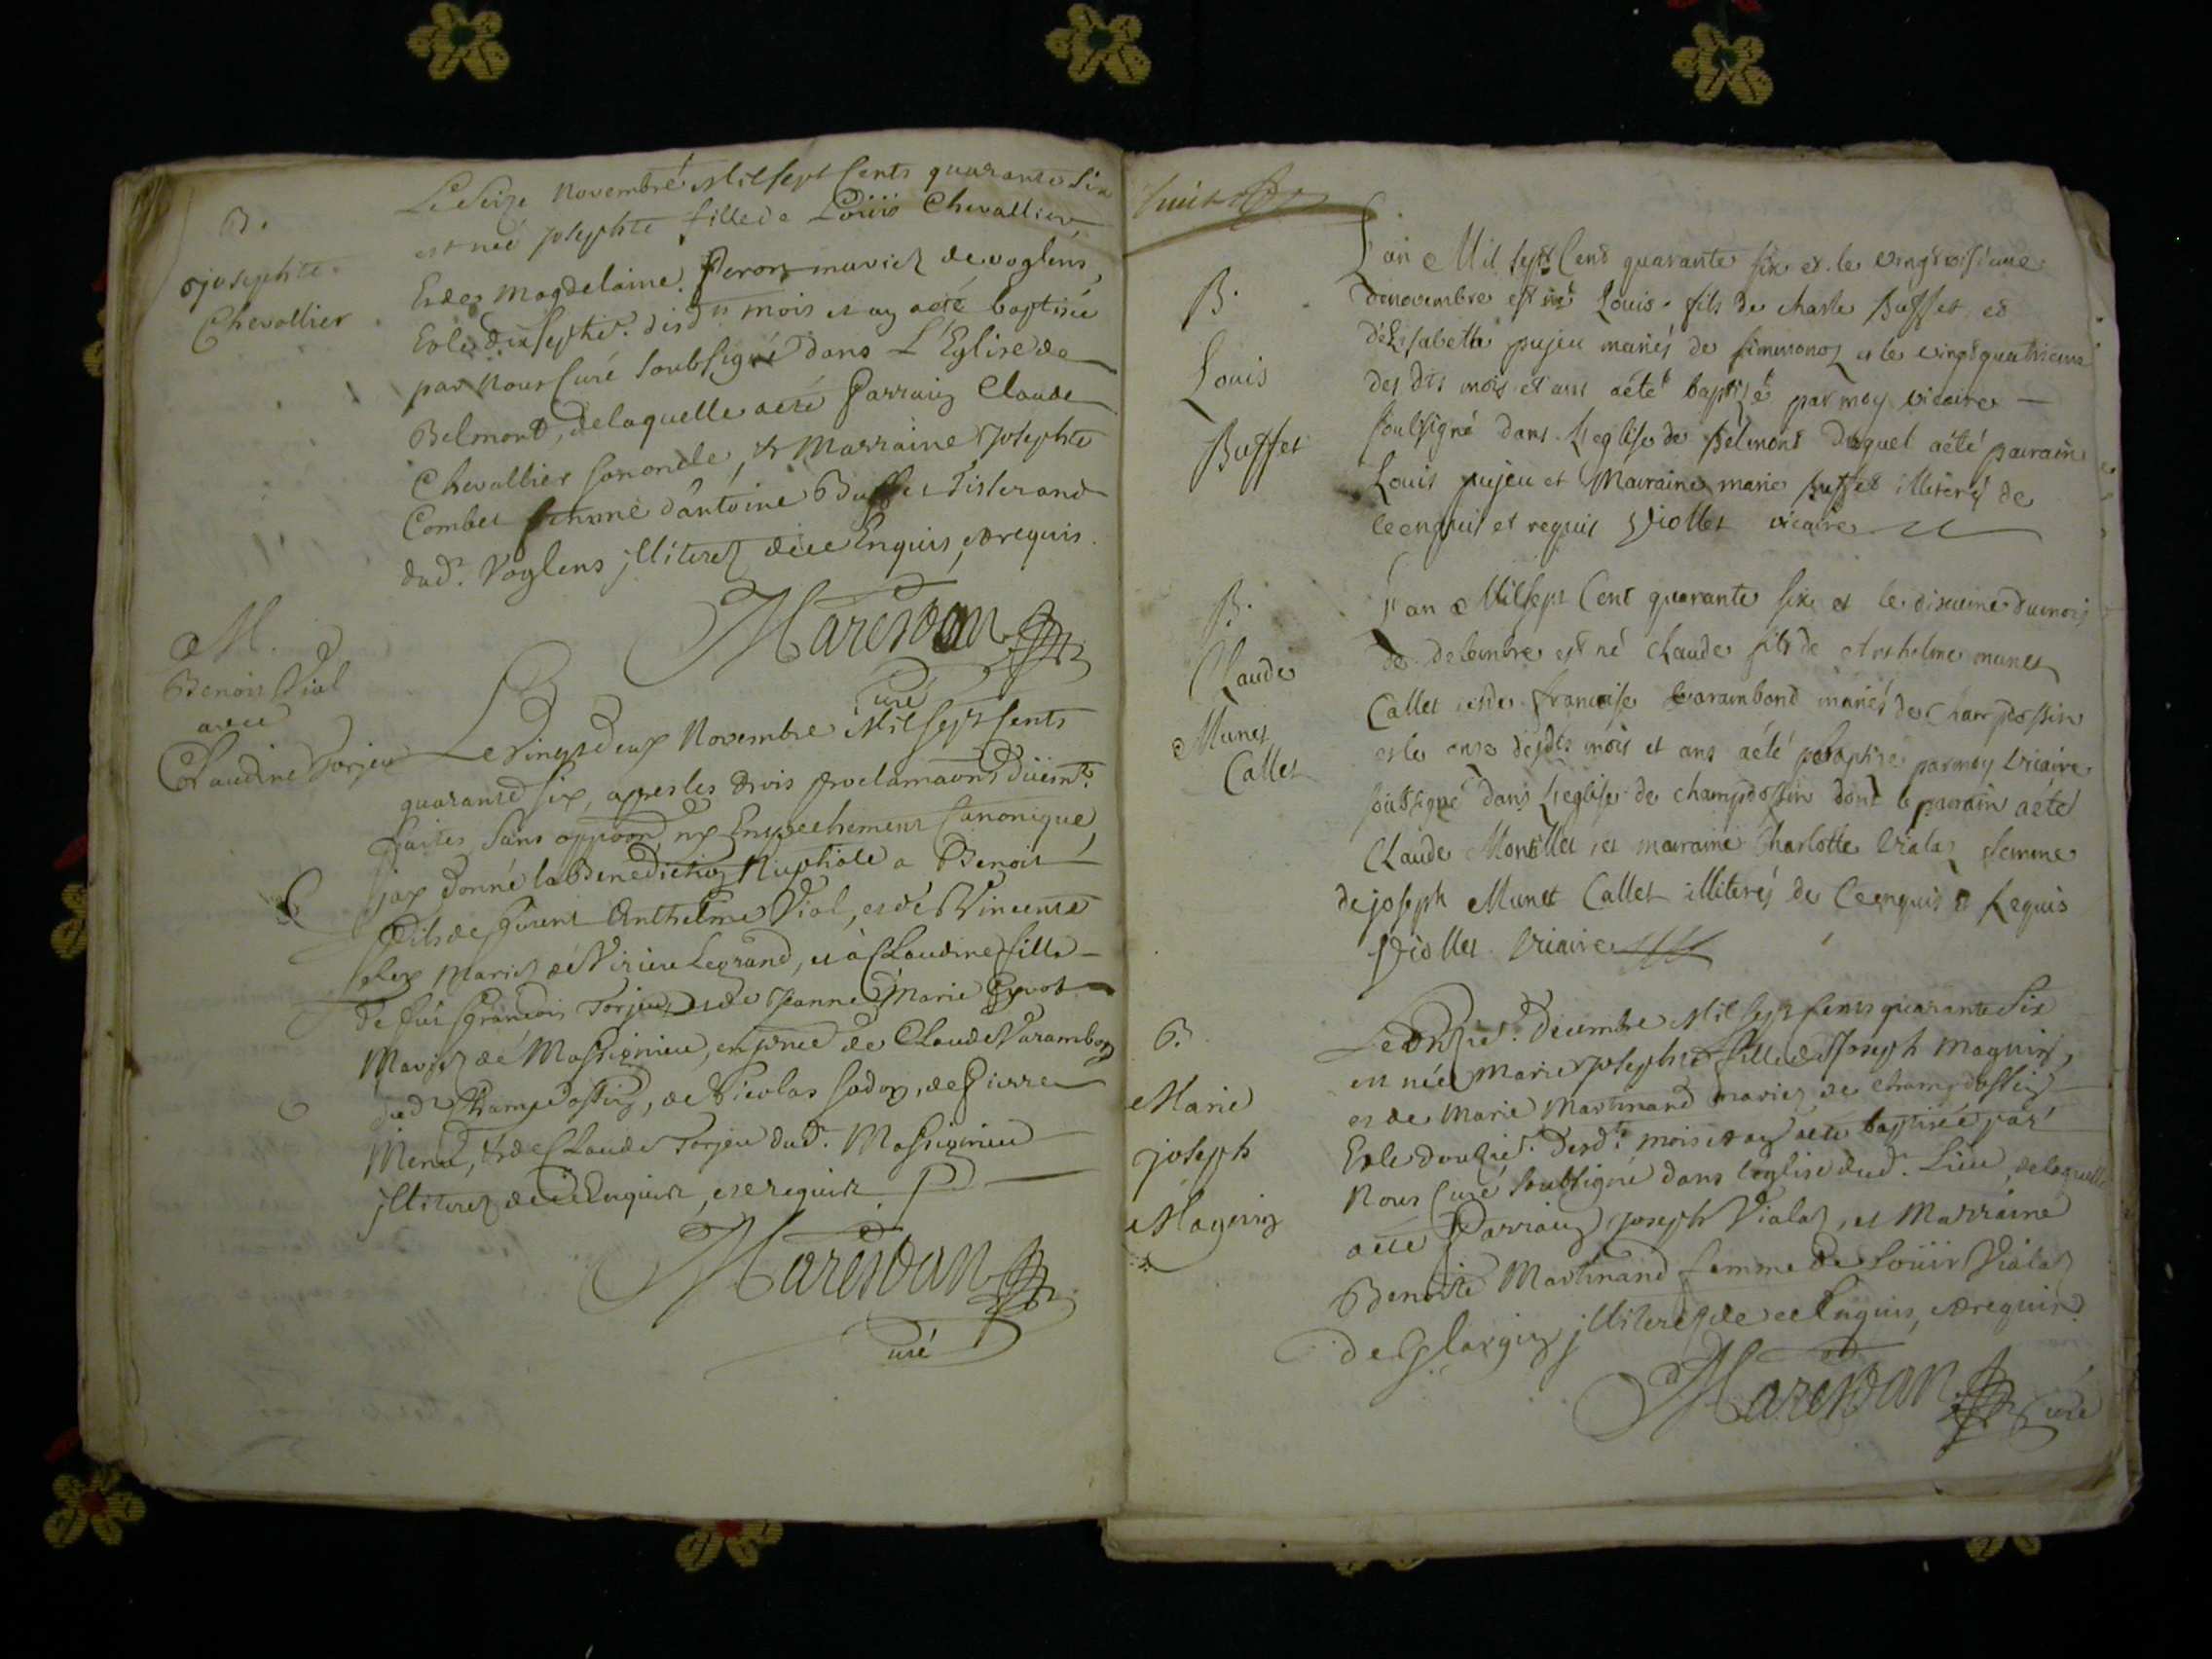 B.
josephte
Chevallier
Le Seize Novembre Mil sept Cents quarante Six
est neé josephte fille de Loüis Chevallier,
Et de Magdelaine Peron mariez de voglens,
Et le dix septie. desd. mois et an a eté baptisée
par Nous Curé Soubsigné dans L'Eglise de
Belmont, de laquelle a eté Parrain Claude
Chevallier son oncle, & Marraine josephte
Combet femme d'antoine Buffet Tisserand
dud. Voglens jlliterez de ce Enquis, & requis.
Marestan
Curé
M.
Benoit Vial
avec
Claudine Torjeu
Le Vingt deux Novembre Mil Sept Cents
quarante Six, apres les trois proclamaons düemt.
faites, Sans oppoon, ny Empechement Canonique,
jay donné la Benediction Nuptiale a Benoit
fils de Anthelme Vial, et de Vincente
mariez de Virieu Legrand, et à Claudine fille
de fut François Torjeu et de jeanne Marie
Mariez de Massignieu, en pnce de Claude Varambon
dud. Champdossin, de Nicolas de Pierre
Menu, & de Claude Torjeu dud. Massignieu
jlliterez de ce Enquis, et requis
Marestan
Curé
B.
Louis
Buffet
L'an Mil sept Cent quarante six et le vingtroisieme
de novembre est né Louis fils de charle Buffet et
d'Elisabeth pujeu mariés de et le vingt quatrieme
des dts mois et ans a été baptizé par moy vicaire
soussigné dans L'eglise de Belmont duquel a été parain
Louis pujeu et Maraine marie Buffet illiterés de
ce enquis et requis Viollet vicaire
B.
Claude
Munet
Callet
L'an Mil sept Cent quarante six et le dixieme du mois
de decembre est né Claude fils de Anthelme munet
Callet et de francoise varambond mariés de Champdossin
et le onze desdts mois et ans a été baptisé par moy vicaire
soussigné dans L'eglise de champdossin dont le parain a été
Claude Montillet et maraine Charlotte Vialaz femme
de joseph Munet Callet illiterés de Ce enquis & Requis
Viollet Vicaire
B.
Marie
joseph
Magnin
Le Onzie. Decembre Mil Sept Cents quarante Six
est née Marie josephte fille de Joseph Magnin,
et de Marie Martinand mariez de Champdossin
Et le douzie. desd. mois et an a eté baptisée par
Nous Curé Soubsigné dans l'eglise dud. Lieu, de laquelle
a eté Parrain joseph Vialaz, et Marraine
Benoite Martinand femme de Loüis Vialaz
jlliterez de ce Enquis, & requis.
Marestan Curé